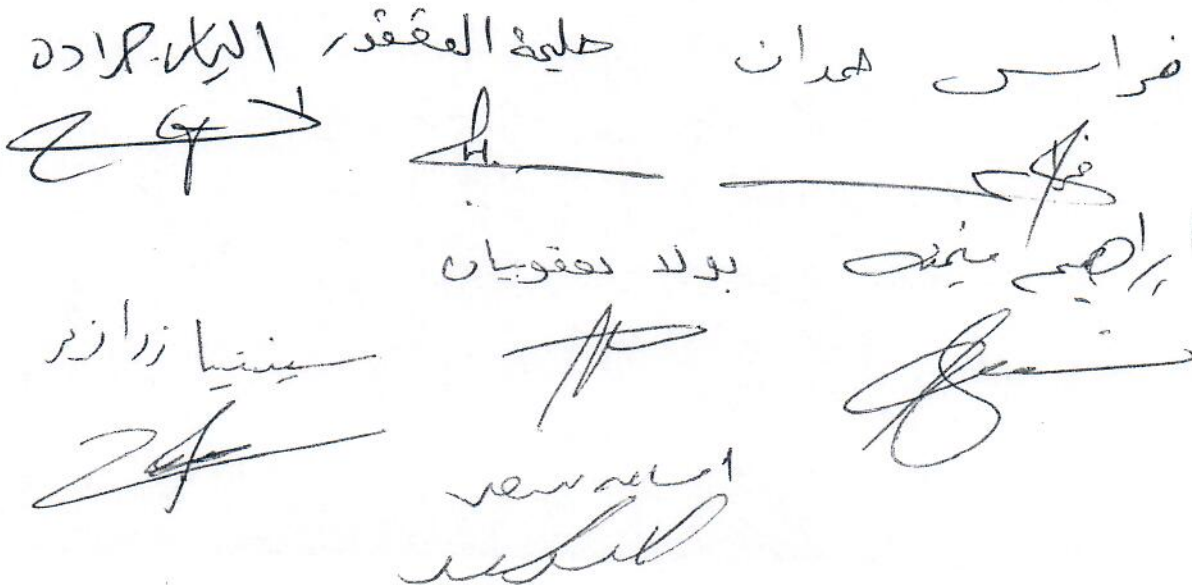 فراس حمدان حليمة القعقور الياس جرادة
ابراهيم منيمنه بولا يعقوبيان
سينتيا زرازير
اسامه سعد